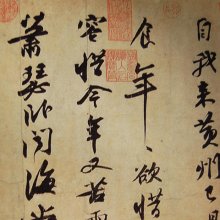 自我來黃州已
食年〻欲惜
容惜今年又苦雨
蕭瑟臥聞海